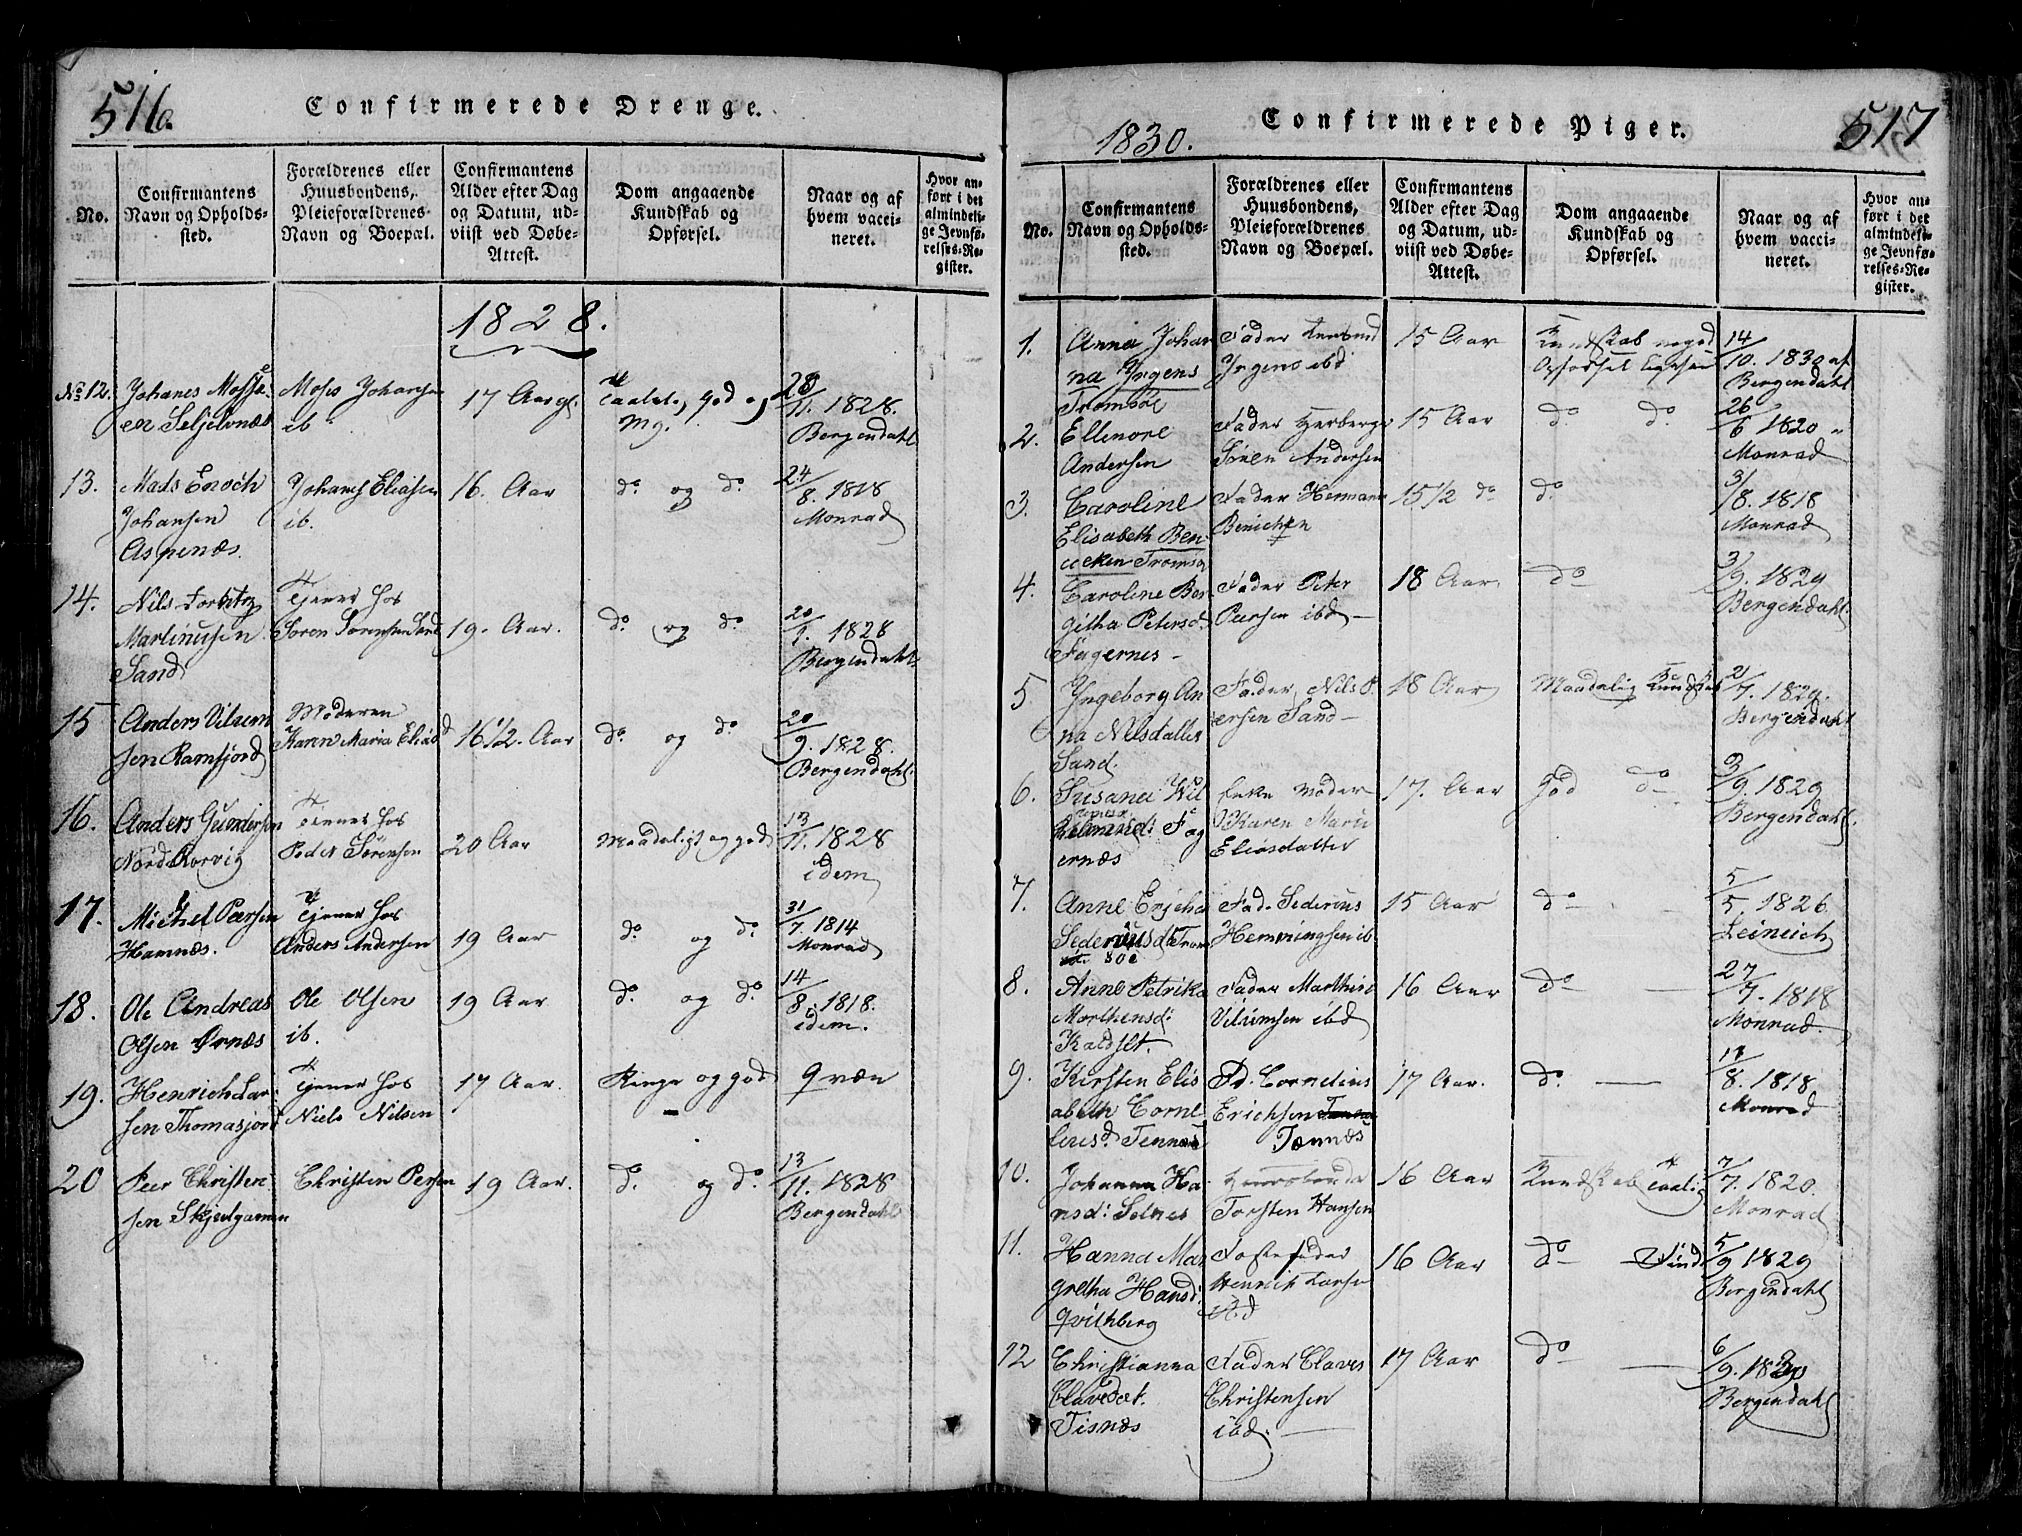 516.
Confirmerede Drenge.
No.
Confirmantens
Navn og Opholds-
sted.
Forældrenes eller
Huusbondens,
Pleieforældrenes
Navn og Boepæl.
Confirmantens
Alder efter Dag
og Datum, ud-
viist ved Døbe-
Attest.
Dom angaaende
Kundskab og
Opførsel.
Naar og af
hvem vacci-
neret.
Hvor an-
ført i det
almindeli-
ge Jevnfø-
relses-Re-
gister.
1828.
No 12.
Johanes
en Seljelvnæs
Moses Johansen
ib
17 Aar
god og
Mg.
28/11. 1828.
Bergendahl
13.
Mads Enoch
Johansen
Aspenæs.
Johanes Eliasen
ib.
16. Aar
do og do
24/8. 1818
Monrad
14.
Nils
Martinusen
Sand
Tjener hos
Søren Sørensen Sand
19. Aar.
do og do
20/9. 1828
Bergendahl
15
Anders Vilum
sen Ramfjord
Moderen
Karen Maria Eliasd
16 1/2. Aar
do og do
20/9. 1828.
Bergendahl.
16.
Anders Gundersen
Nord Rorvig
Tienner hos
Peder Sørensen
20 Aar
Maadeligt og god
13/11. 1828
idem
17.
Michel Pærsen
Hamnæs.
Tjener hos
Anders Andersen
19 Aar
do og do
31/7. 1814
Monrad
18.
Ole Andreas
Olsen Ørnæs
Ole Olsen
ib.
19 Aar
do og do
14/8. 1818.
idem.
19.
Henrich Lar-
sen Thomasjord
Tjener hos
Niels Nilsen
17 Aar.
Ringe og god
qvæn
20
Peer Christen
sen Skjevlgamen
Christen Persen
19 Aar.
do og do
13/11. 1828
Bergendahl
1830.
Confirmerede Piger.
517
No.
Confirmantens
Navn og Opholds-
sted.
Forældrenes eller
Huusbondens,
Pleieforældrenes
Navn og Boepæl.
Confirmantens
Alder efter Dag
og Datum, ud-
viist ved Døbe-
Attest.
Dom angaaende
Kundskab og
Opførsel.
Naar og af
hvem vacci-
neret.
Hvor an-
ført i det
almindeli-
ge Jevnfø-
relses-Re-
gister.
1.
Anna Johan
na Yrgens
Tromsøe
Fader
Yrgens ibd
15 Aar
Kundskab meget
Opførsel
14/10. 1830 af
Bergendahl
2.
Ellenore
Andersen
Fader Herberge
Sören Andersen
15 Aar
do do
26/6 1820
Monrad
3.
Caroline
Elisabeth Ben
ecken Tromsø
Fader Herman
Benichen
15 1/2 do
do
3/8. 1818
Monrad
4.
Caroline Ber-
githa Petersd.
Fagernes -
Fader Peter
Peersen ibd -
18 Aar
do
3/9. 1829
Bergendahl.
5
Yngeborg An
na Nilsdatter
Sand.
Fader Nils P.
ersen Sand -
18 Aar
Maadelig Kundskab
2/7. 1829.
Bergendahl
6.
Susana Wil
helmind: Fag
ernæs
Enke Moder
Karen Maria
Eliasdatter
17. Aar
God do
3/9. 1829
Bergendahl.
7.
Anne Ericha
Sederiusd. Trom
søe
Fad. Sederius
Hemmingsen ib.
15 Aar
do -
5/5 1826
8.
Anne Petrika
Morthensd:
Kaldslt.
Fader Morthen
Vilumsen ibd
16 Aar
do -
27/7. 1818
Monrad
9.
Kirsten Elis
abeth Corne
liusd. Tennæs
Fd. Cornelius
Erichsen
Tænnæs
17 Aar.
do -
17/8. 1818
Monrad
10.
Johanna Ha
nsd: Selnes
Huusbonde
Torsten Hansen
16 Aar
Kundskab taalig
7/7. 1820.
Monrad
11.
Hanna Mar
gretha Hansd:
qvithberg
Fosterfader
Henrich Larsen
16 Aar
do -
5/9 1829
Bergendahl
12
Christianna
Clavedat.
Tisnæs
Fader Claves
Christensen
ibd.
17 Aar
do -
6/9. 1830
Bergendahl